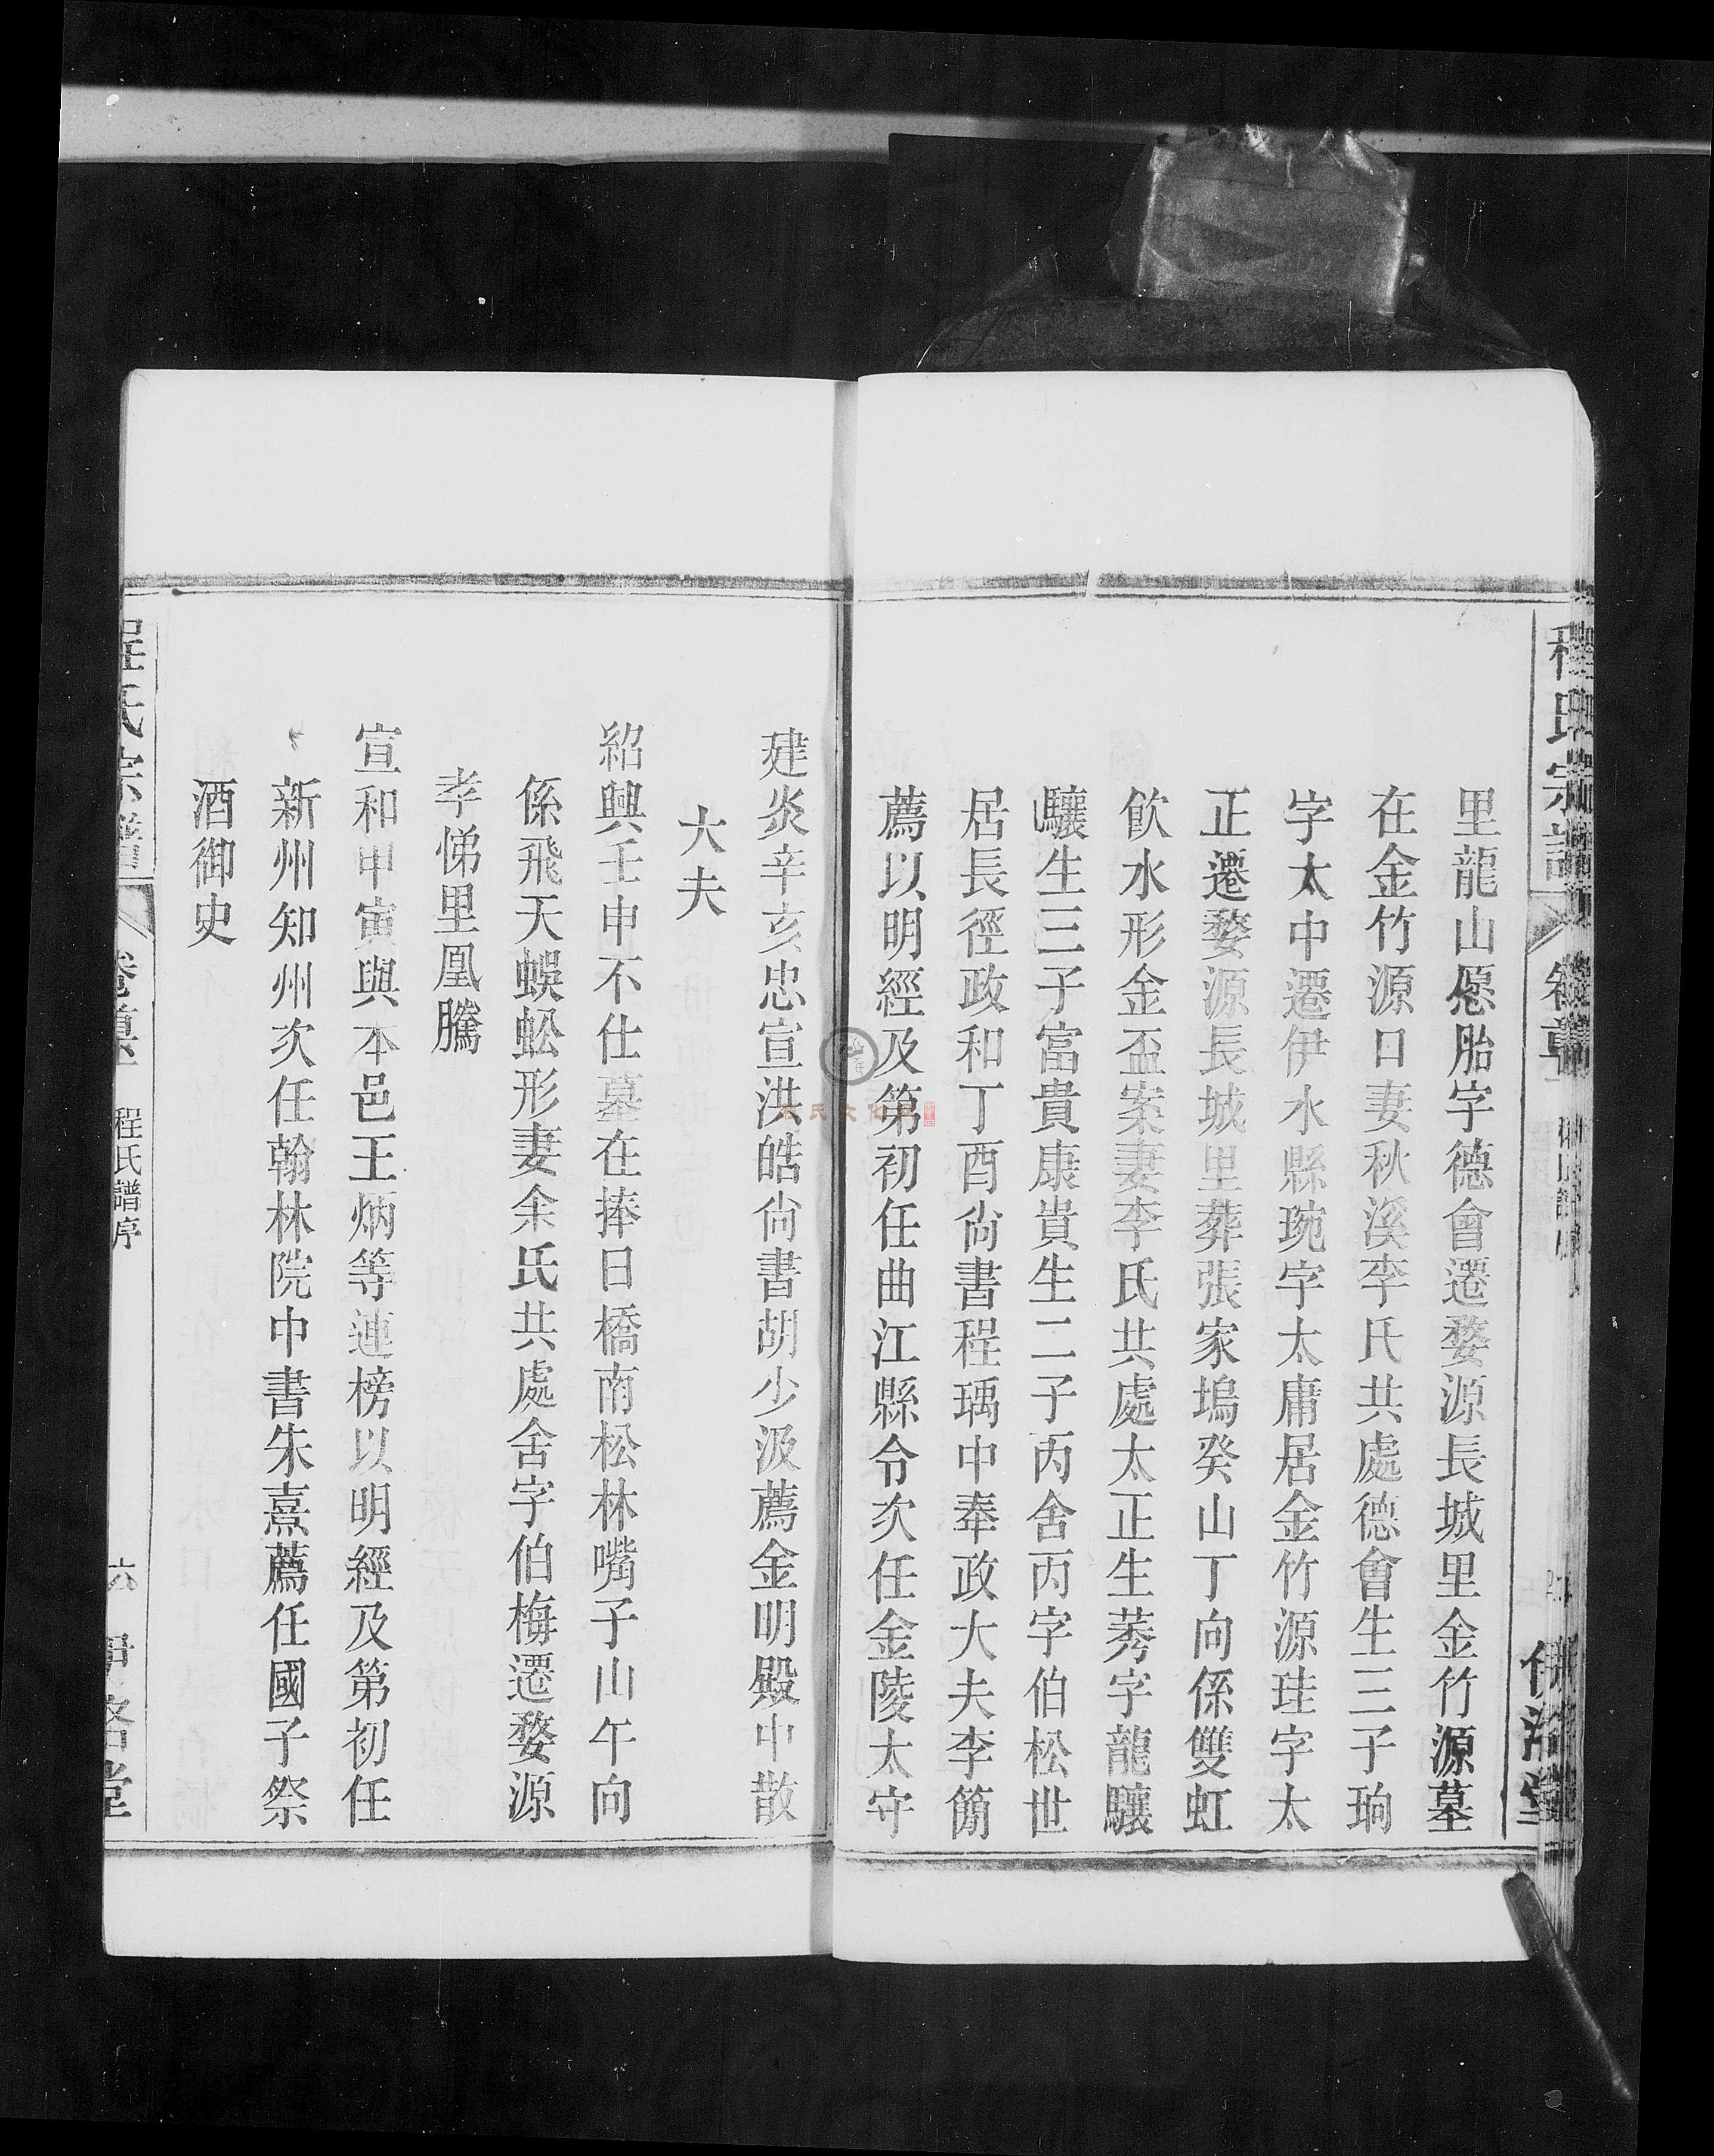 程氏宗譜
里龍山愿胎字德會遷婺源長城里金竹源墓
在金竹源口妻秋溪李氏共處德會生三子珦
字太中遷伊水縣琬字太庸居金竹源珪字太
正遷婺源長城里葬張家塢癸山丁向係雙虹
飲水形金盃案妻李氏共處太正生莠字龍驤
驤生三子富貴康貴生二子丙舍丙字伯松世
居長徑政和丁酉尙書程瑀中奉政大夫李簡
薦以明經及第初任曲江縣令次任金陵太守
建炎辛亥忠宣洪皓尙書胡少汲薦金明殿中散
大夫
紹興壬申不仕墓在捧日橋南松林嘴子山午向
係飛天蜈蚣形妻余氏共處舍字伯梅遷婺源
孝悌里凰騰
宣和甲寅與本邑王炳等連榜以明經及第初任
新州知州次任翰林院中書朱熹薦任國子祭
酒御史
程氏宗譜
卷首
程氏譜序
六
伊洛堂